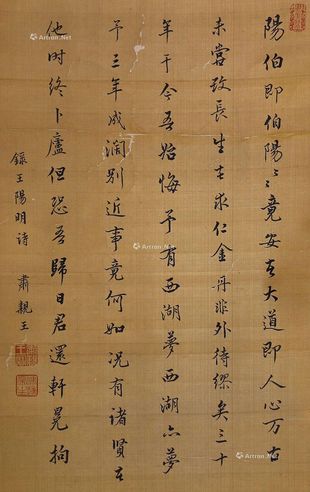 陽伯即伯陽〻竟安在大道即人心万古
未嘗改長生在求仁金丹非外待繆矣三十
年于今吾始悔予有西湖夢西湖亦夢
予三年成濶別近事竟何如况有諸賢在
他时終卜廬但恐吾歸日君還軒冕拘
錄王陽明诗 肅親王
Artron.Net
Artron.Net
Artron.Net